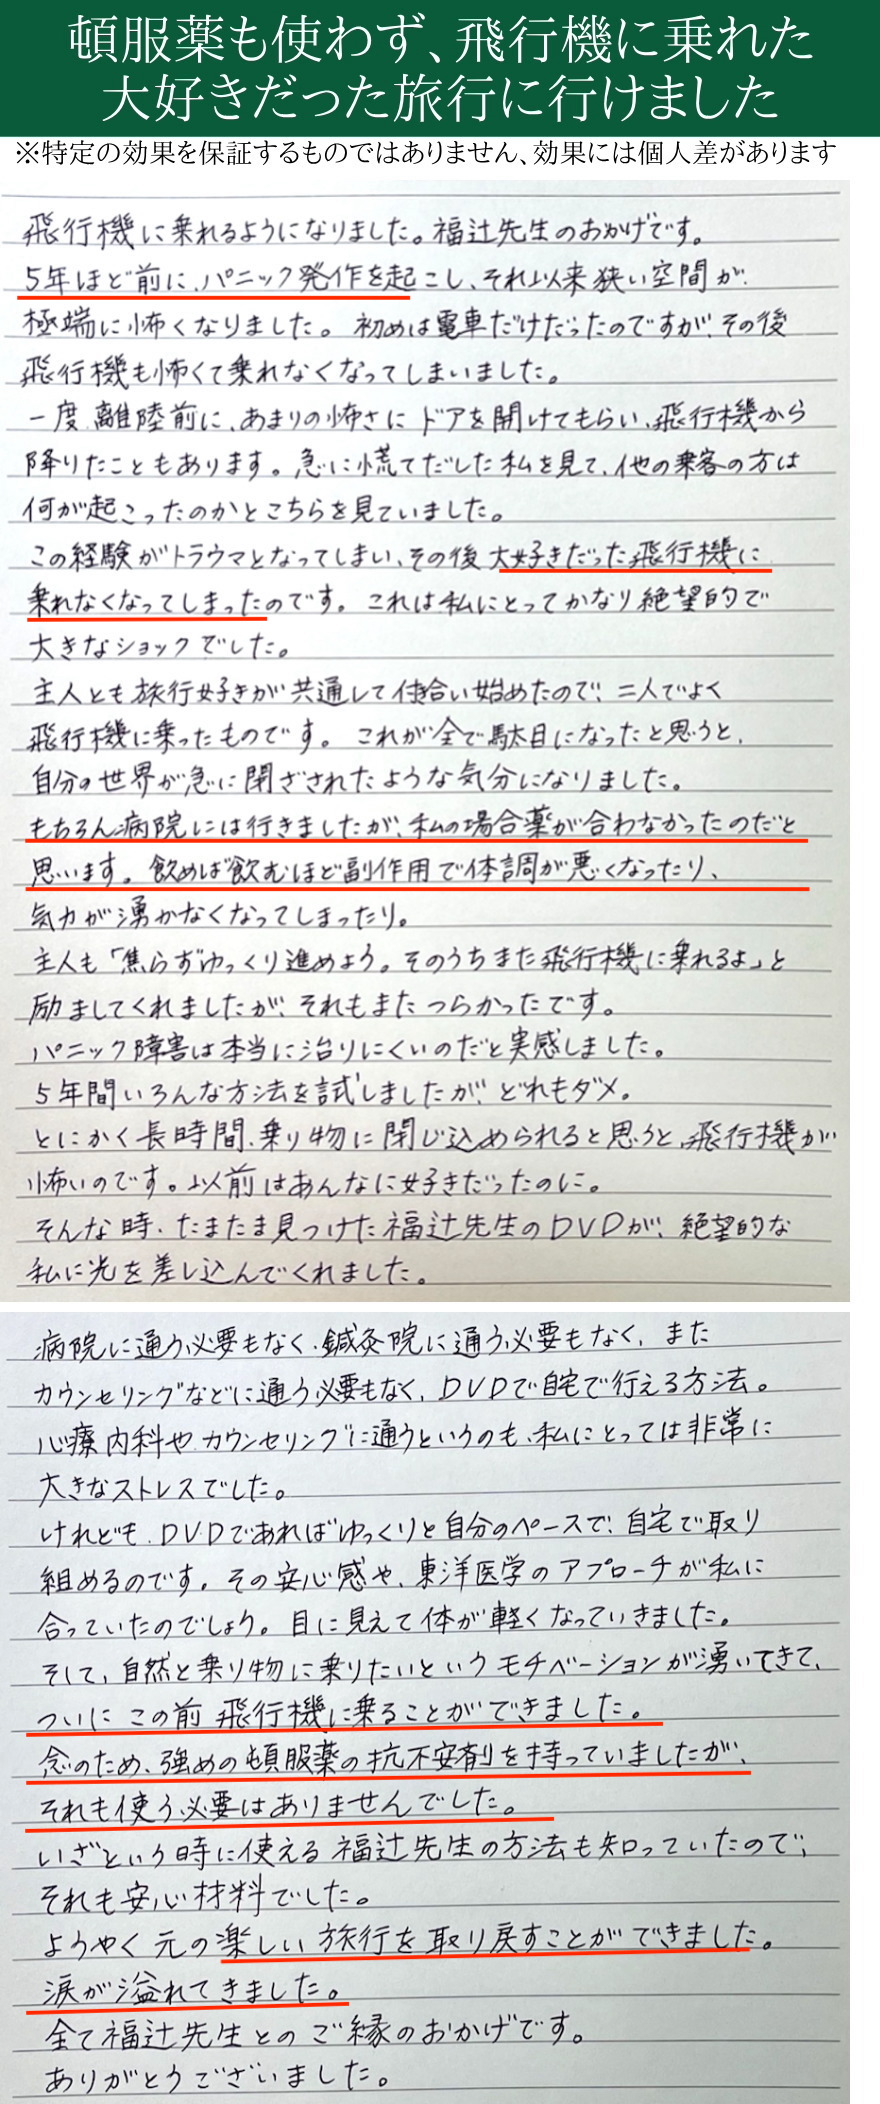 頓服薬も使わず、飛行機に乗れた
大好きだった旅行に行けました
※特定の効果を保証するものではありません、効果には個人差があります
飛行機に乗れるようになりました。福辻先生のおかげです。
5年ほど前に、パニック発作を起こし、それ以来狭い空間が
極端に怖くなりました。初めは電車だけだったのですが、その後
飛行機も怖くて乗れなくなってしまいました。
一度離陸前に、あまりの怖さにドアを開けてもらい、飛行機から
降りたこともあります。急に慌てだした私を見て、他の乗客の方は
何が起こったのかとこちらを見ていました。
この経験がトラウマとなってしまい、その後大好きだった飛行機に
乗れなくなってしまったのです。これは私にとってかなり絶望的で
大きなショックでした。
主人とも旅行好きが共通して付き合い始めたので、二人でよく
飛行機に乗ったものです。これが全て駄目になったと思うと、
自分の世界が急に閉ざされたような気分になりました。
もちろん病院には行きましたが、私の場合薬が合わなかったのだと
思います。飲めば飲むほど副作用で体調が悪くなったり、
気力が湧かなくなってしまったり。
主人も「焦らずゆっくり進めよう。そのうちまた飛行機に乗れるよ」と
励ましてくれましたが、それもまたつらかったです。
パニック障害は本当に治りにくいのだと実感しました。
5年間いろんな方法を試しましたが、どれもダメ。
とにかく長時間、乗り物に閉じ込められると思うと、飛行機が
怖いのです。以前はあんなに好きだったのに。
そんな時、たまたま見つけた福辻先生のDVDが、絶望的な
私に光を差し込んでくれました。
病院に通う必要もなく、鍼灸院に通う必要もなく、また
カウンセリングなどに通う必要もなく、DVDで自宅で行える方法。
心療内科やカウンセリングに通うというのも、私にとっては非常に
大きなストレスでした。
けれども、DVDであればゆっくりと自分のペースで、自宅で取り
組めるのです。その安心感や、東洋医学のアプローチが私に
合っていたのでしょう。目に見えて体が軽くなっていきました。
そして、自然と乗り物に乗りたいというモチベーションが湧いてきて、
ついにこの前飛行機に乗ることができました。
念のため、強めの頓服薬の抗不安剤を持っていましたが、
それも使う必要はありませんでした。
いざという時に使える福辻先生の方法も知っていたので、
それも安心材料でした。
ようやく元の楽しい旅行を取り戻すことができました。
涙が溢れてきました。
全て福辻先生とのご縁のおかげです。
ありがとうございました。